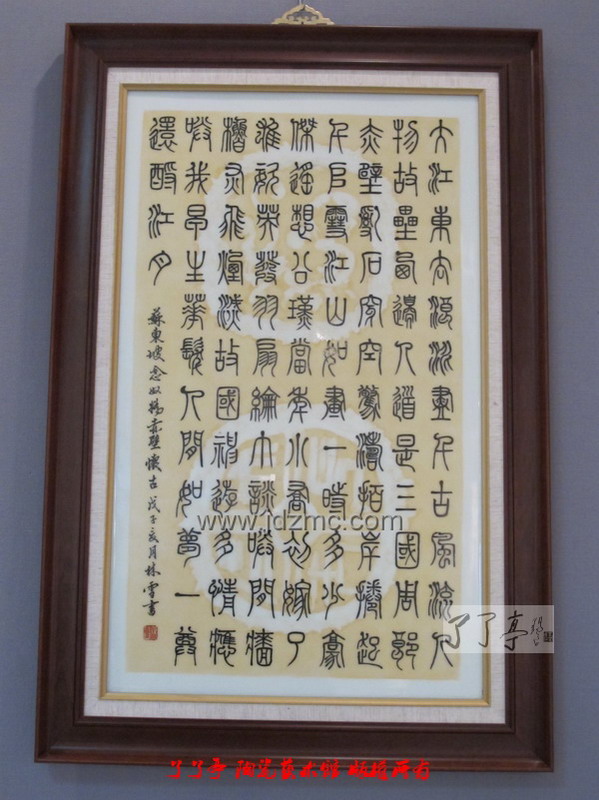 大江東去浪淘盡千古風流人
物故壘西邊人道是三國周郎
赤壁亂石穿空驚濤拍岸捲起
千堆雪江山如畫一時多少豪
傑遙想公瑾當年小喬初嫁了
雄姿英發羽扇綸巾談笑間檣
櫓灰飛煙滅故國神遊多情應
笑我早生華髮人間如夢一尊
還酹江月
蘇東坡念奴嬌赤壁懷古戊子亥月林雪書
www.jdzmc.com
了了亭
了了亭 陶瓷艺术馆 版权所有